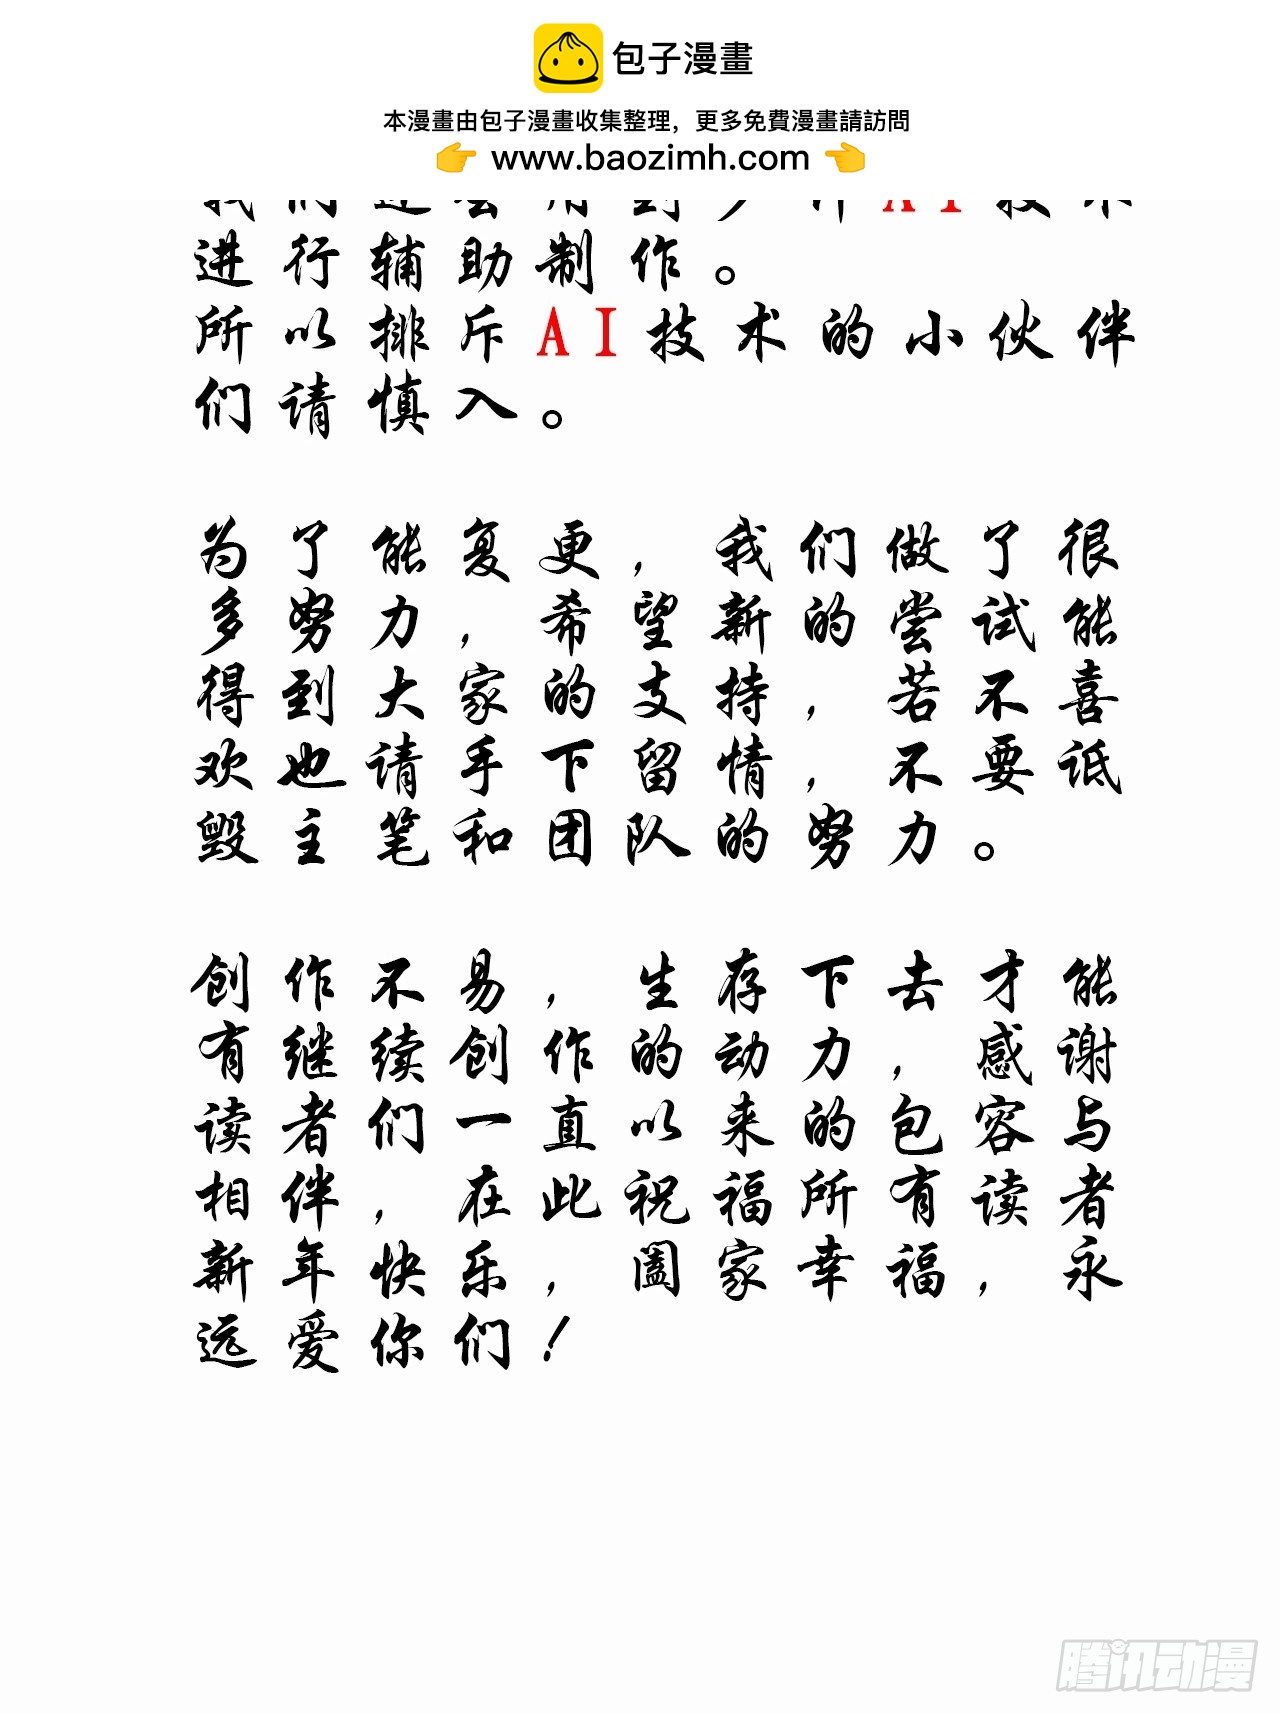 包子漫畫
本漫畫由包子漫畫收集整理，更多免費漫畫請訪問
www.baozimh.com
我们还会用到少许AI技术
进行辅助制作。
所以排斥AI技术的小伙伴
们请慎入。
为了能复更，我们做了很
多努力，希望新的尝试能
得到大家的支持，若不喜
欢也请手下留情，不要诋
毁主笔和团队的努力。
创作不易，生存下去才能
有继续创作的动力，感谢
读者们一直以来的包容与
相伴，在此祝福所有读者
新年快乐，阖家幸福，永
远爱你们！
腾讯动漫